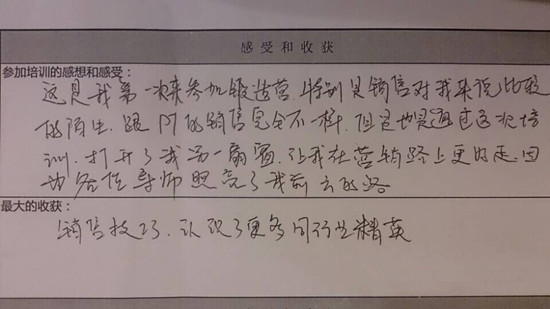 感受和收获
参加培训的感想和感受：
这是我第一次来参加锻造营，特别是销售对我来说比较
的陌生，跟 的销售完全不一样，但是也是通过这次培
训，打开了我另一扇窗，让我在营销路上更好走，因
为各位导师照亮了我前去的路
最大的收获：
销售技巧、认识了更多同行业精英